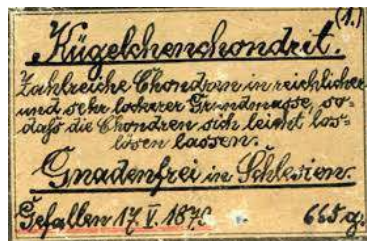 (1.)
Kügelchenchondrit.
Zahlreiche Chondren in reichlicher
und sehr lockerer Grundmasse, so-
daß die Chondren sich leicht los=
lösen lassen.
Gnadenfrei in Schlesien.
Gefallen 17. V. 1879. 665 g.